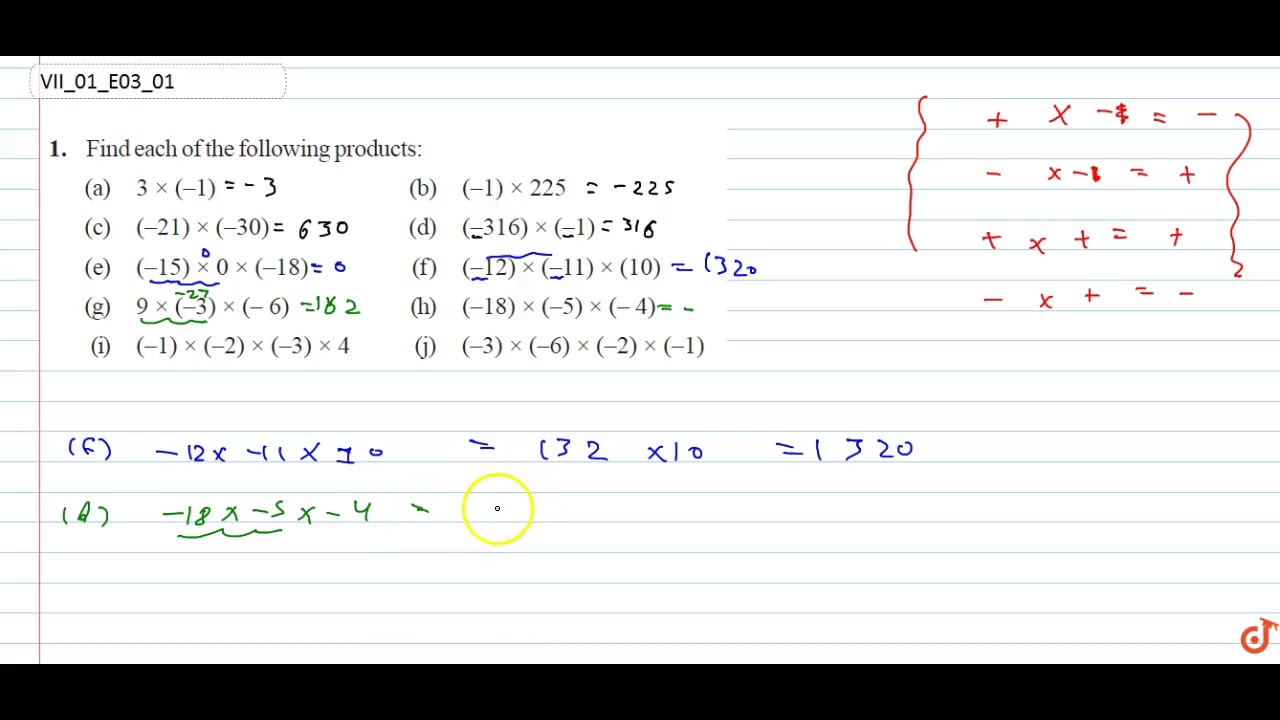 VII_01_E03_01
+ x -1 = -
1. Find each of the following products:
- x -1 = +
(a) 3 × (–1) = -3 (b) (–1) × 225 = -225
(c) (–21) × (–30) = 630 (d) (–316) × (–1) = 316
+ x + = +
0
(e) (–15) × 0 × (–18) = 0 (f) (–12) × (–11) × (10) = 1320
- x + = -
-27
(g) 9 × (–3) × (– 6) = 162 (h) (–18) × (–5) × (– 4) = -
(i) (–1) × (–2) × (–3) × 4 (j) (–3) × (–6) × (–2) × (–1)
(f) -12 x -11 x 10 = 132 x10 = 1320
-18 x -5 x -4 =